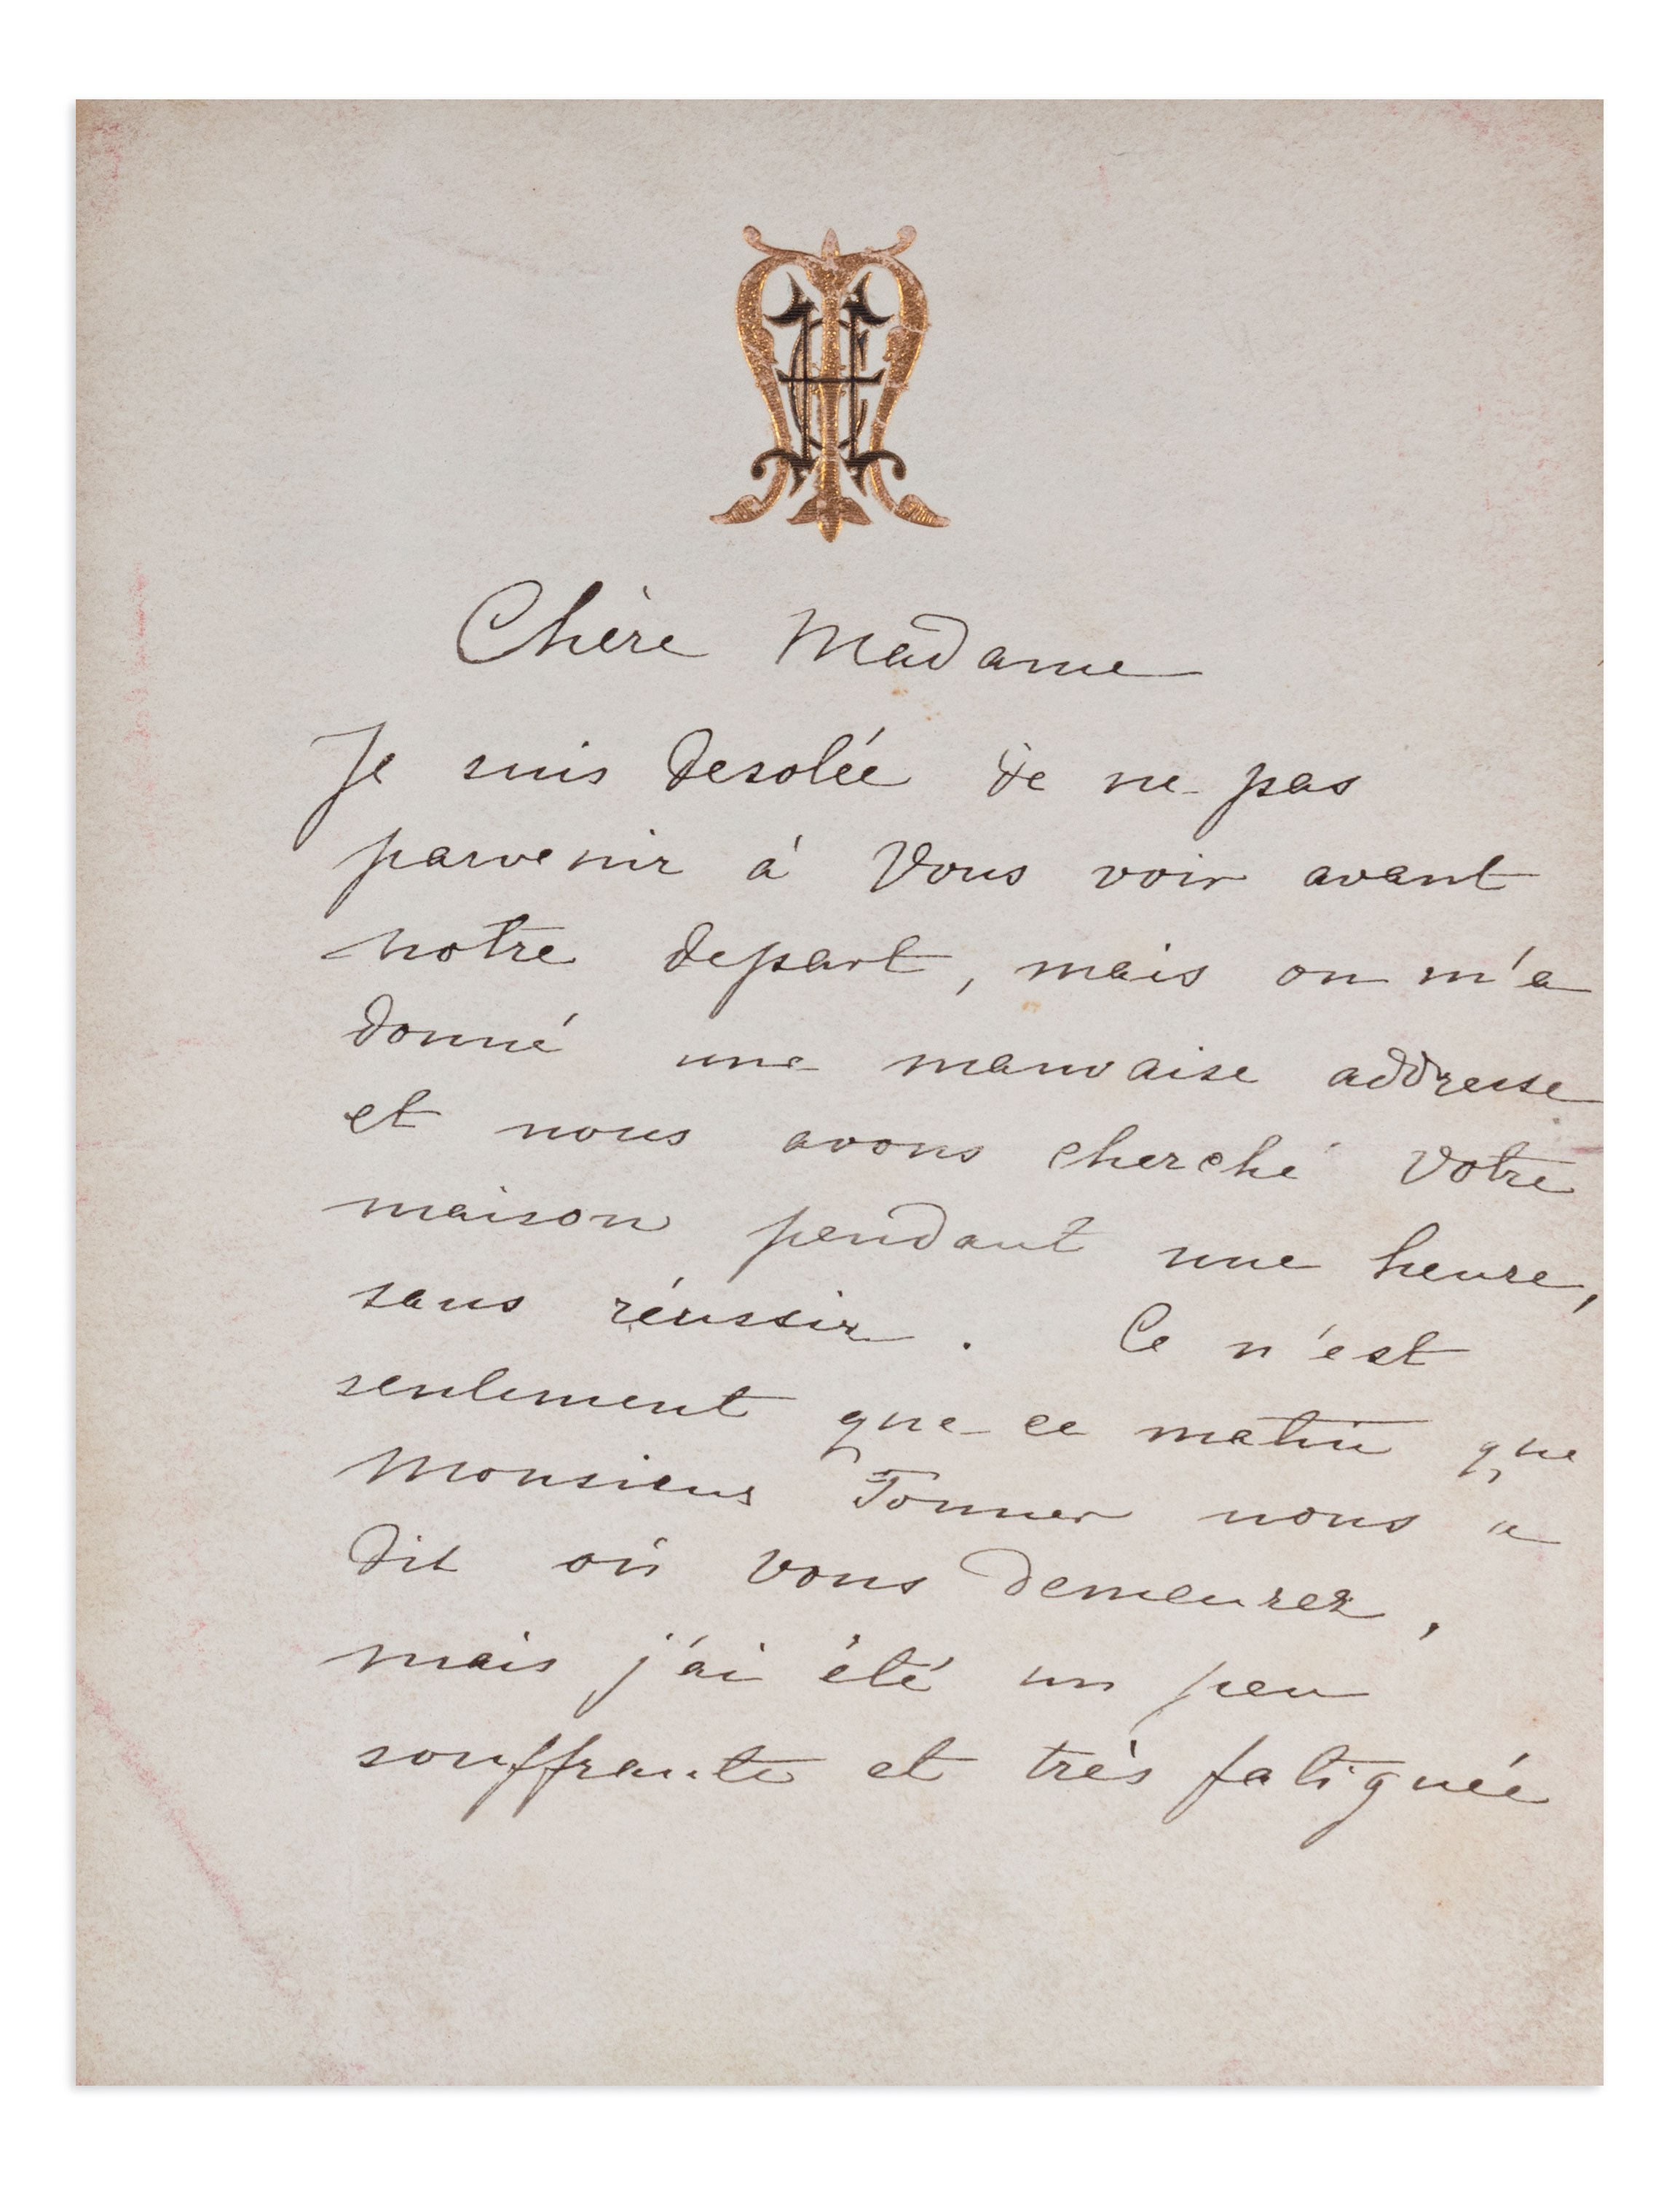 Chère Madame
Je suis desolée de ne pas
parvenir à Vous voir avant
notre depart, mais on m'a
donné une mauvaise addresse
et nous avons cherché votre
maison pendant une heure,
sans réussir. Ce n'est
seulement que ce matin que
Monsieur nous a
dit où vous demeurez,
mais j'ai été un peu
souffrante et très fatiguée